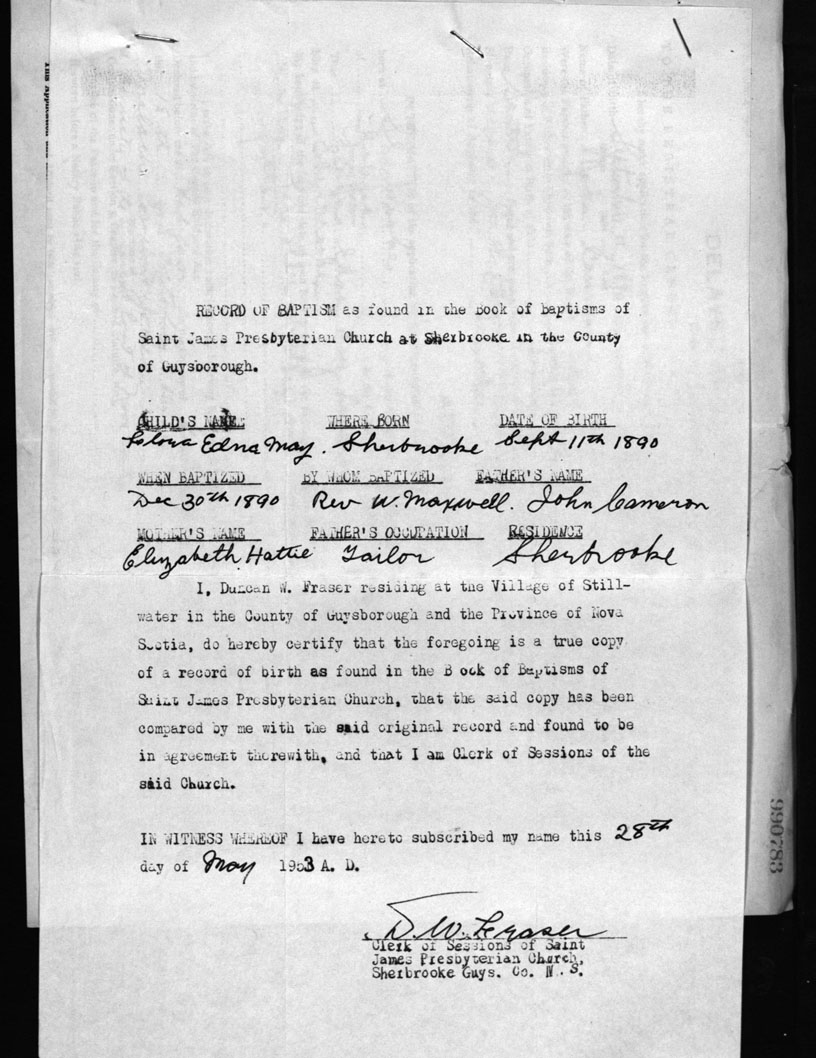 RECORD OF BAPTISM as found in the Book of baptisms of
Saint James Presbyterian Church at Sherbrooke in the County
of Guysborough.
CHILD'S NAME WHERE BORN DATE OF BIRTH
Edna May. Sherbrooke Sept 11th 1890
WHEN BAPTIZED BY WHOM BAPTIZED FATHER'S NAME
Dec 30th 1890 Rev W. Maxwell. John Cameron
MOTHER'S NAME FATHER'S OCCUPATION RESIDENCE
Elizabeth Hattie Tailor Sherbrooke
I, Duncan W. Fraser residing at the Village of Still-
water in the County of Guysborough and the Province of Nova
Scotia, do hereby certify that the foregoing is a true copy
of a record of birth as found in the B ook of Baptisms of
Saint James Presbyterian Church, that the said copy has been
compared by me with the said original record and found to be
in agreement therewith, and that I am Clerk of Sessions of the
said Church.
IN WITNESS WHEREOF I have hereto subscribed my name this 28th
day of May 1953 A. D.
D. W. Fraser
Clerk of Sessions of Saint
James Presbyterian Church,
Sherbrooke Guys. Co. N. S.
990783